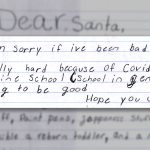 Dear, Santa,
m sorry if ive been bad
lly hard because of Covid
ine School (School in gen
g to be good
Hope you u
ff, Paint pens, japenese stuff
uble a reborn toddler, and a n